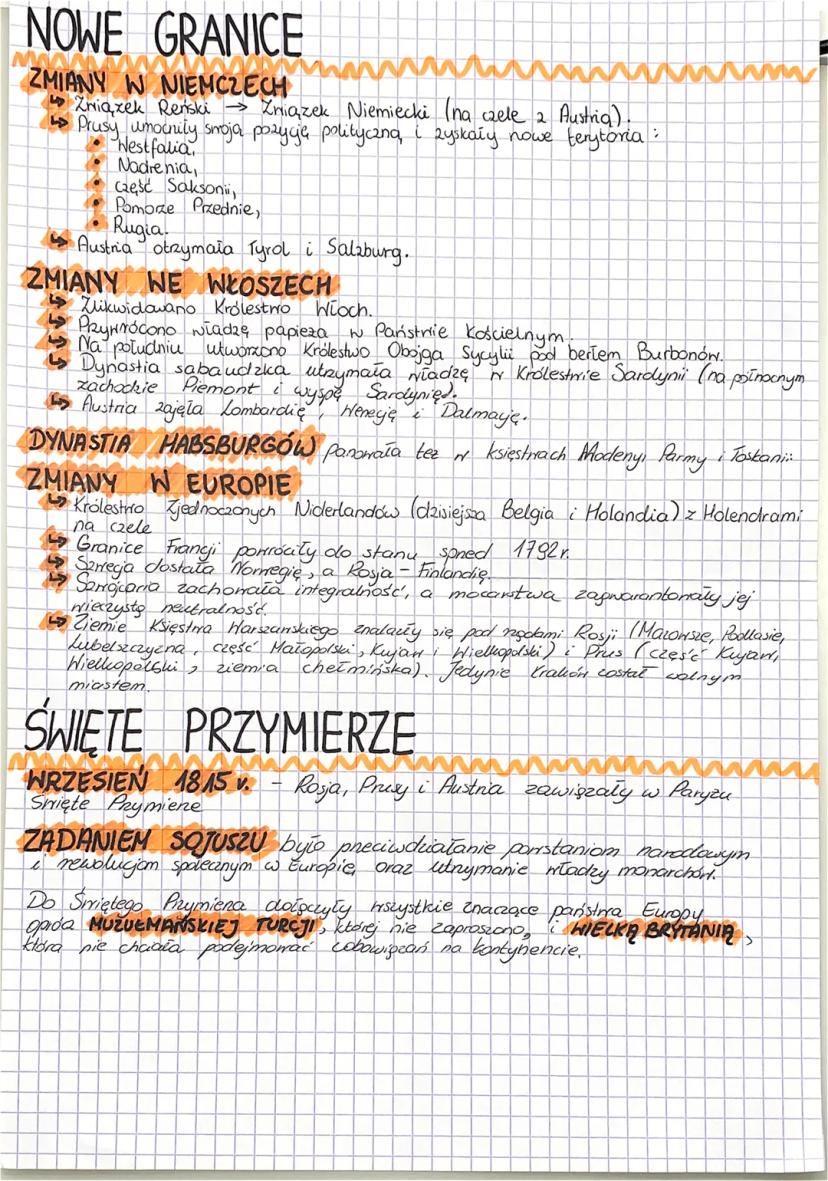 NOWE GRANICE
ZMIANY W NIEMCZECH
↳ Związek Reński → Związek Niemiecki (na czele z Austrią).
↳ Prusy umocniły swoją pozycję polityczną i zyskały nowe terytoria:
• Westfalia,
• Nadrenia,
• część Saksonii,
• Pomorze Przednie,
• Rugia.
↳ Austria otrzymała Tyrol i Salzburg.
ZMIANY WE WŁOSZECH
↳ Zlikwidowano Królestwo Włoch.
↳ Przywrócono władzę papieża w Państwie Kościelnym.
↳ Na południu utworzono Królestwo Obojga Sycylii pod berłem Burbonów.
↳ Dynastia sabaudzka utrzymała władzę w Królestwie Sardynii (na północnym
zachodzie Piemont i wyspę Sardynię).
↳ Austria zajęła Lombardię, Wenecję i Dalmację.
DYNASTIA HABSBURGÓW panowała też w księstwach Modeny, Parmy i Toskanii.
ZMIANY W EUROPIE
↳ Królestwo Zjednoczonych Niderlandów (dzisiejsza Belgia i Holandia) z Holendrami
na czele
↳ Granice Francji powróciły do stanu sprzed 1792r.
↳ Szwecja dostała Norwegię, a Rosja – Finlandię.
↳ Szwajcaria zachowała integralność, a mocarstwa zagwarantowały jej
wieczystą neutralność.
↳ Ziemie Księstwa Warszawskiego znalazły się pod rządami Rosji (Mazowsze, Podlasie,
Lubelszczyzna, część Małopolski, Kujaw i Wielkopolski) i Prus (część Kujaw,
Wielkopolski, ziemia chełmińska). Jedynie Kraków został wolnym
miastem.
ŚWIĘTE PRZYMIERZE
WRZESIEŃ 1815 r. – Rosja, Prusy i Austria zawiązały w Paryżu
Święte Przymierze
ZADANIEM SOJUSZU było przeciwdziałanie powstaniom narodowym
i rewolucjom społecznym w Europie, oraz utrzymanie władzy monarchów.
Do Świętego Przymierza dołączyły wszystkie znaczące państwa Europy
oprócz MUZUŁMAŃSKIEJ TURCJI, której nie zaproszono, i WIELKĄ BRYTANIĄ,
która nie chciała podejmować zobowiązań na kontynencie.